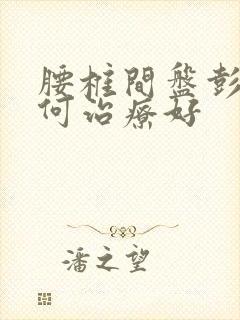 腰椎間盤彭
何治療好
潘之望